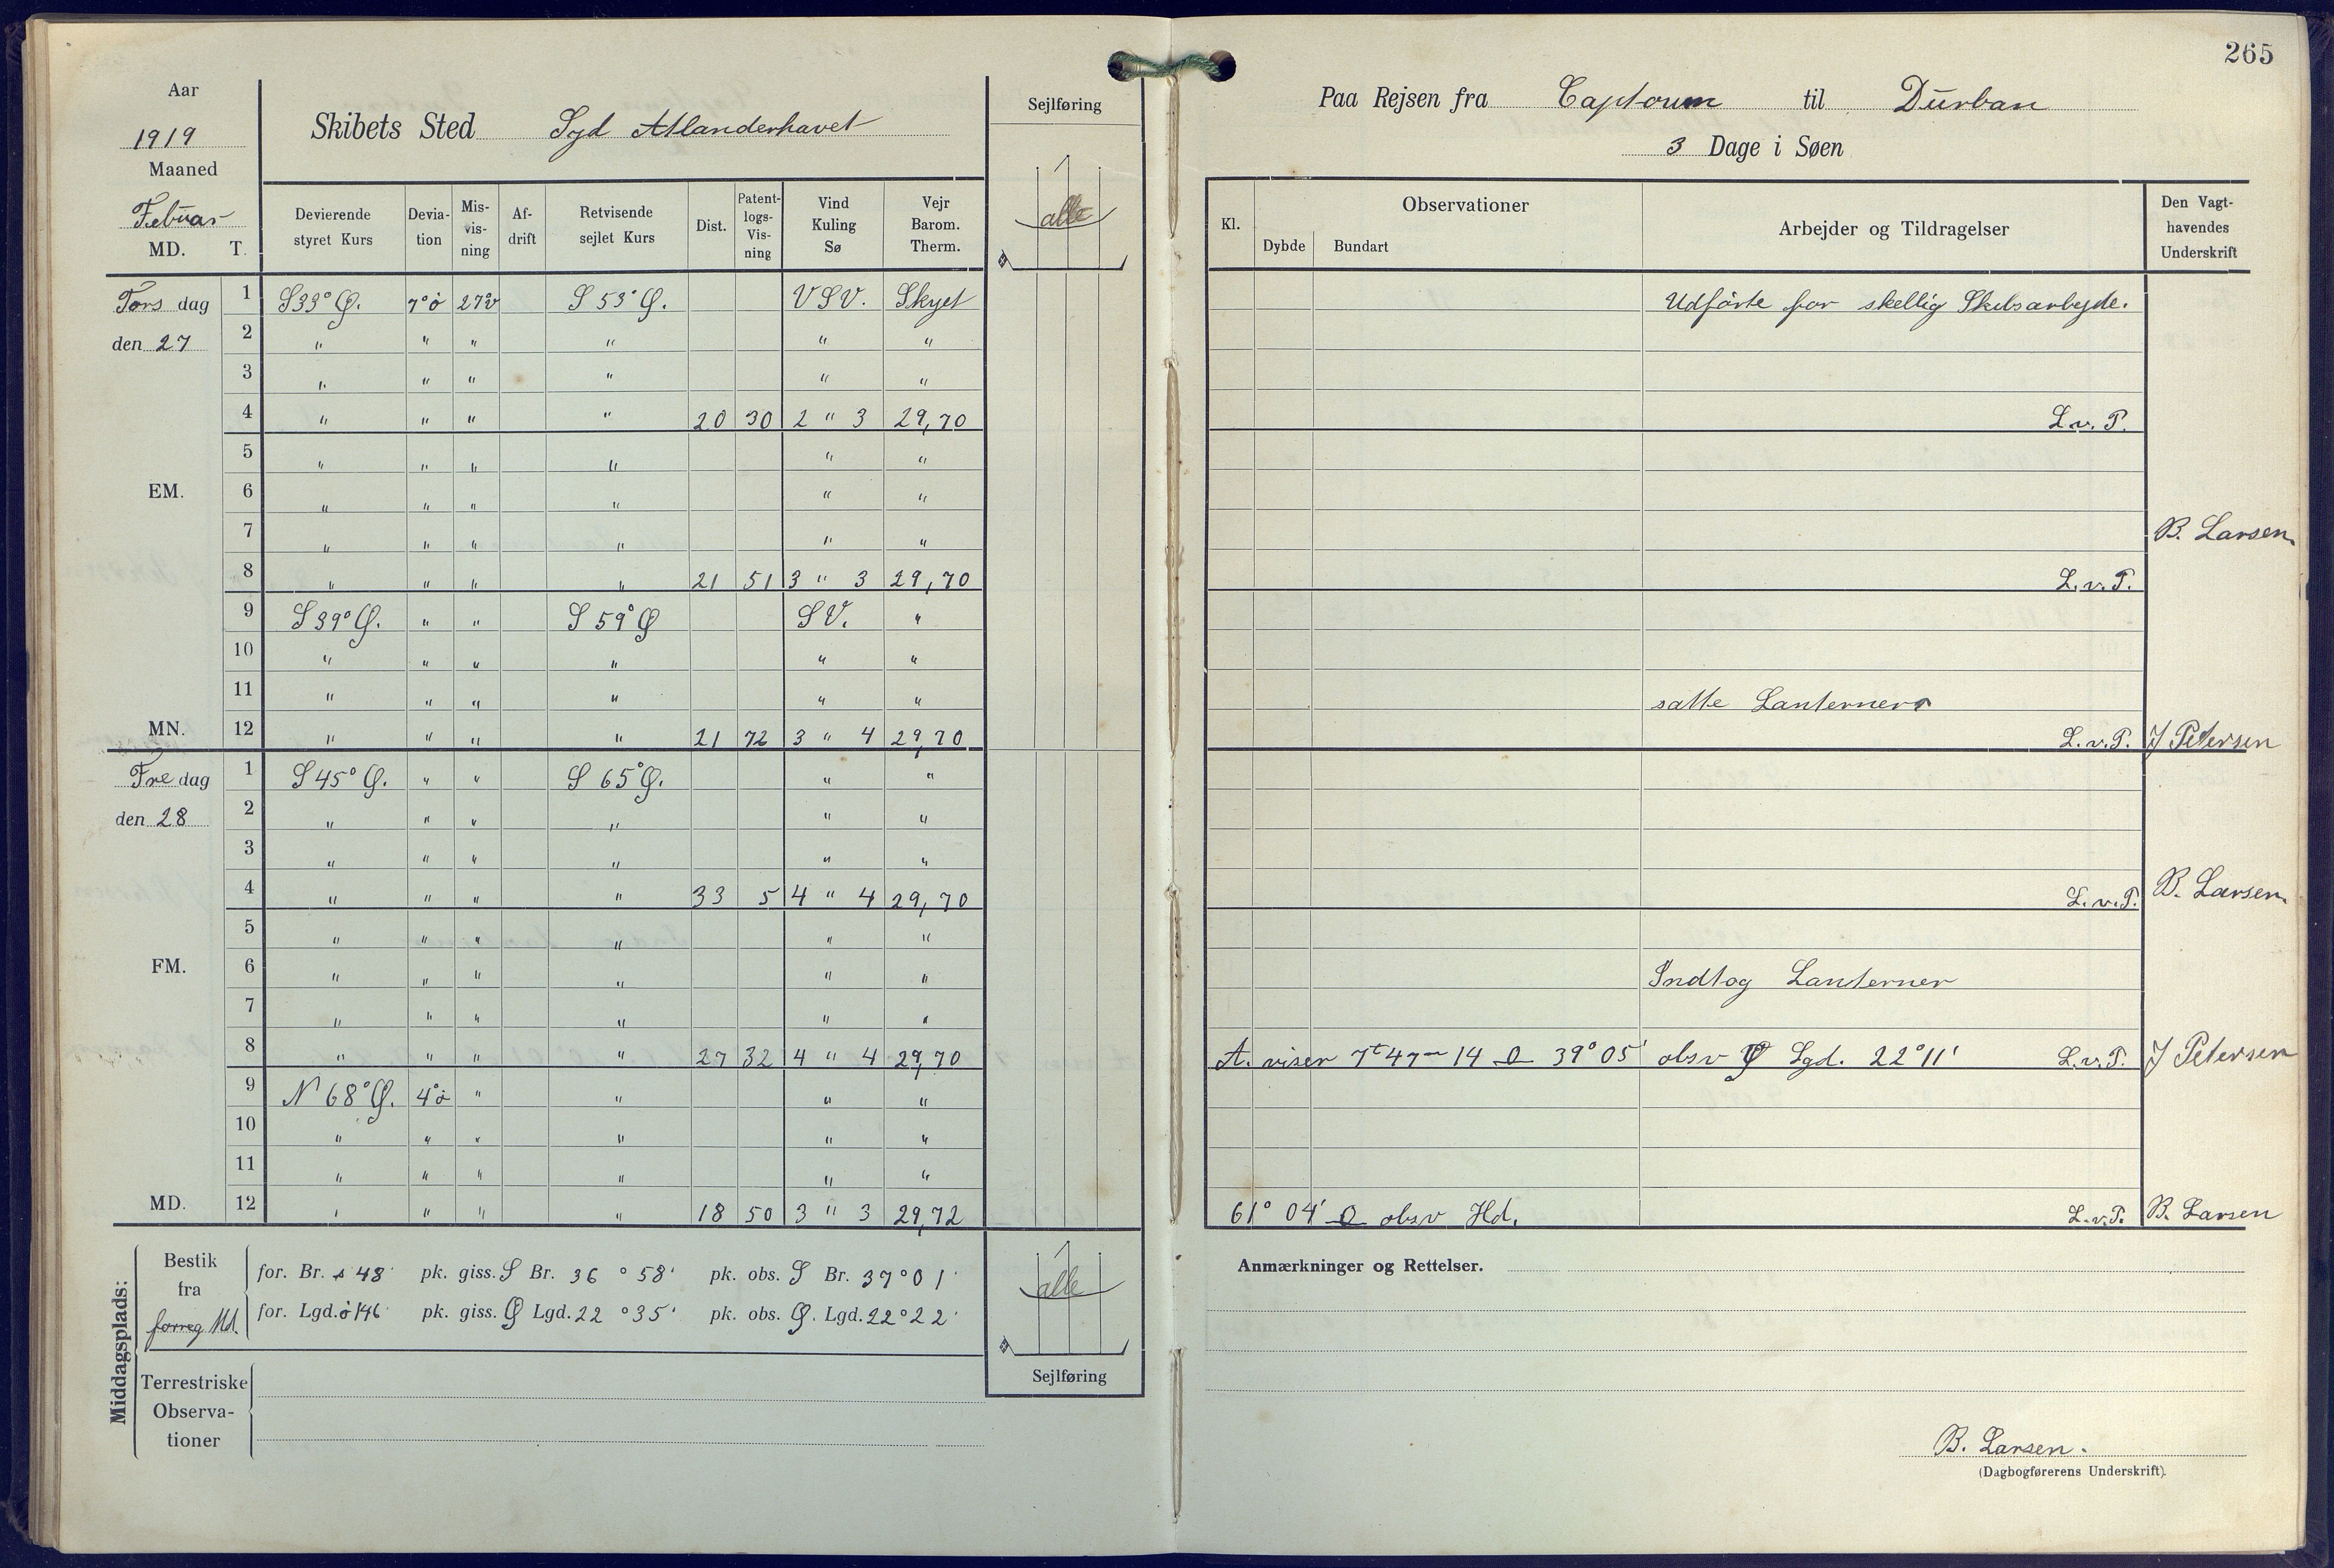 265
Aar
1919
Maaned
Febuar
MD. T.
Skibets Sted Syd Atlanderhavet
Sejlføring
alle
Paa Rejsen fra Captoun til Durban
3 Dage i Søen
Devierende styret Kurs
Devia-tion
Mis-vis-ning
Af-drift
Retvisende sejlet Kurs
Dist.
Patent-logs-Vis-ning
Vind Kuling Sø
Vejr Barom. Therm.
Kl.
Observationer
Dybde Bundart
Arbejder og Tildragelser
Den Vagt-havendes Underskrift
Tors dag 1 S33° Ø. 7°ö 27°v S 53° Ø. VSV. Skyet Udförte for skellig Skibsarbejde.
den 27 2 " " " " " "
3 " " " " " "
4 " " " " 20 30 2 " 3 29,70 L.v.P.
5 " " " " " "
EM. 6 " " " " " "
7 " " " " " " B. Larsen.
8 " " " " 21 51 3 " 3 29,70 L.v.P.
9 S39° Ø. " " S 59° Ø SV. "
10 " " " " " "
11 " " " " " " satte Lanterner
MN. 12 " " " " 21 72 3 " 4 29,70 L.v.P. J Petersen
Fre dag 1 S 45° Ø. " " S 65° Ø. " "
den 28 2 " " " " " "
3 " " " " " "
4 " " " " 33 5 4 " 4 29,70 L.v.P. B. Larsen.
5 " " " " " "
FM. 6 " " " " " " Indtog Lanterner
7 " " " " " "
8 " " " " 27 32 4 " 4 29,70 A. viser 7t 47m 14 O 39° 05' obsv Ø Lgd. 22° 11' L.v.P. J Petersen
9 N 68° Ø. 4°ö " " " "
10 " " " " " "
11 " " " " " "
MD. 12 " " " " 18 50 3 " 3 29,72 61° 04' O obsv Md. L.v.P. B. Larsen
Middagsplads:
Bestik fra forreg Md.
for. Br. s 48' pk. giss. S Br. 36 ° 58' pk. obs. S Br. 37° 01'
for. Lgd. ö 146' pk. giss. Ø Lgd. 22 ° 35' pk. obs. Ø. Lgd. 22° 22'
Terrestriske Observa-tioner
alle
Sejlføring
Anmærkninger og Rettelser.
B. Larsen.
(Dagbogførerens Underskrift).